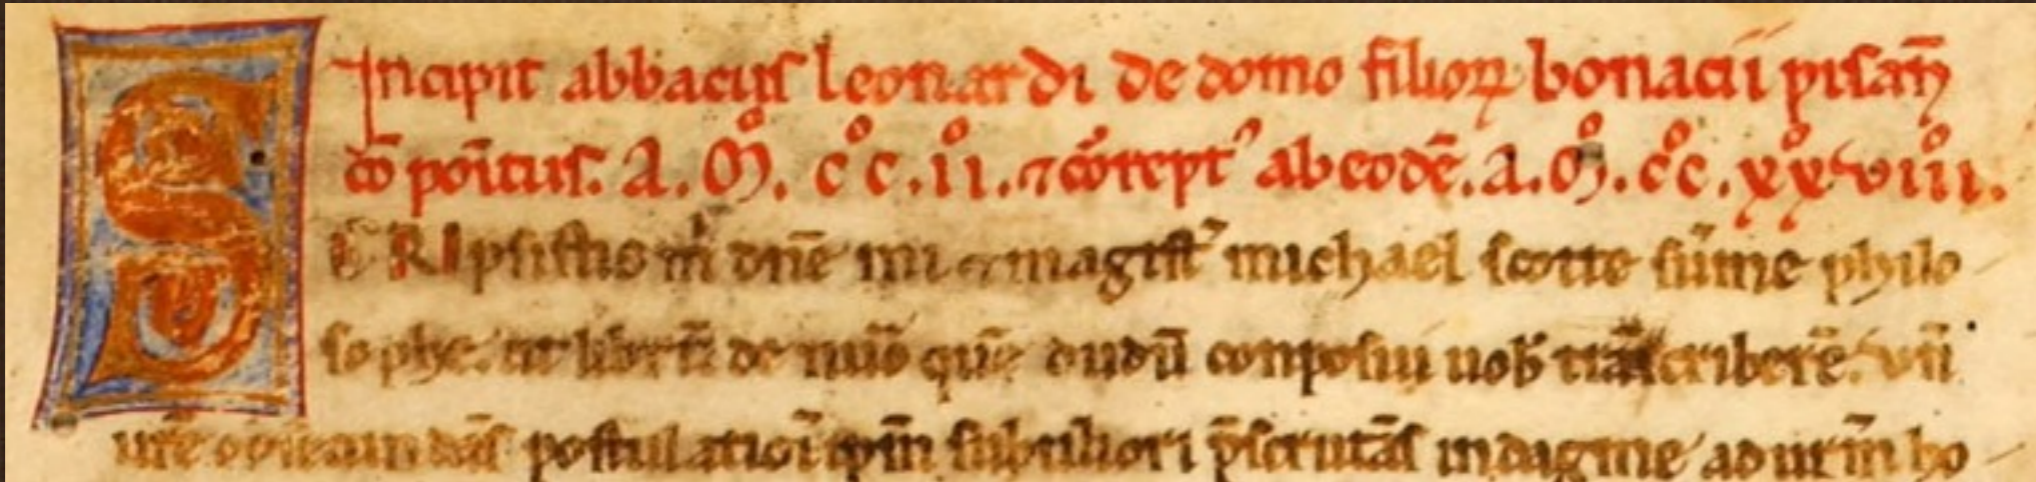 Incipit abbacus leonardi de domo filioꝝ bonacii pisañ
cō poĩtus. A. M̊. c̊c̊. ıı̊. ⁊ cõrept᾽ ab eodē. A. M̊. c̊c̊. xx̊ vııı̊ı.
SCRIpsistis m̃ dñe mi ⁊ magist᾽ michael scotte sũme philo
sophe. ut librũ de nũo quē dudũ conposui uob᾽ trãscriberē. vñ
urẽ postulatiõi ipm̃ subtiliori p̃scrutãs indagine ad urm̃ ho